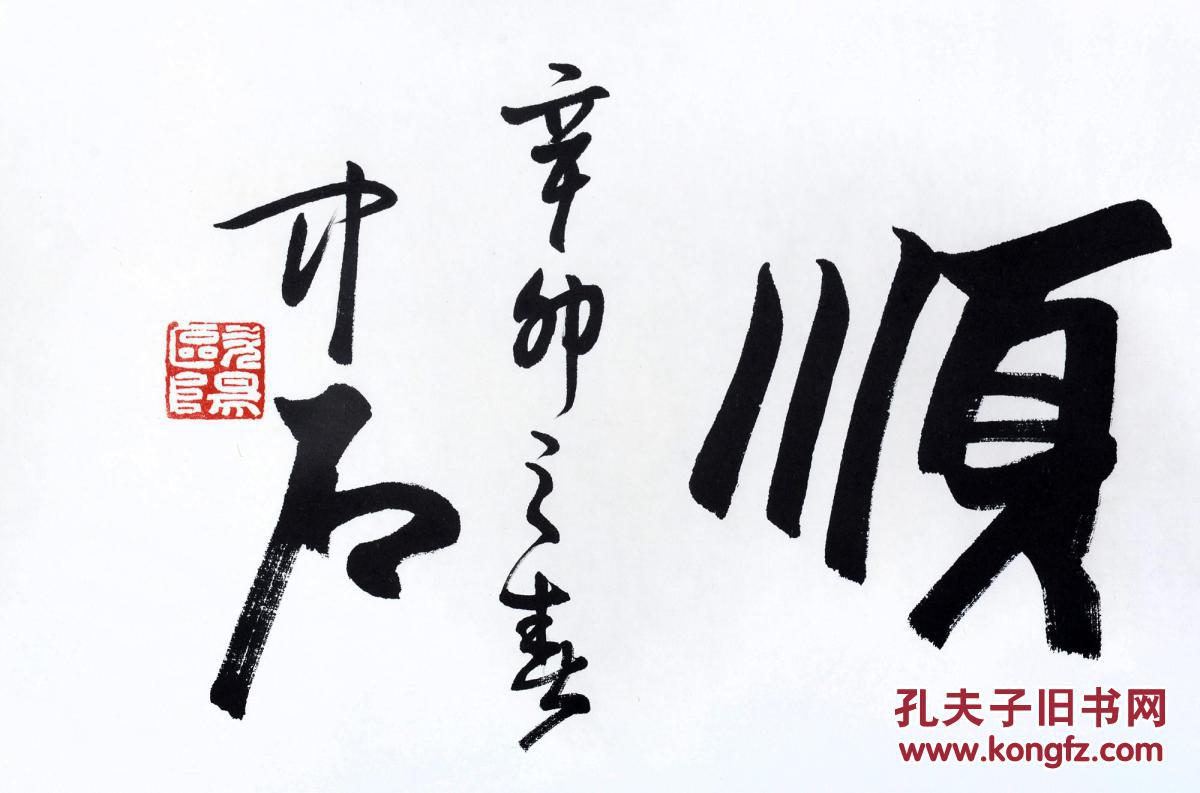 順
辛卯之春
中石
歐陽
孔夫子旧书网
www.kongfz.com